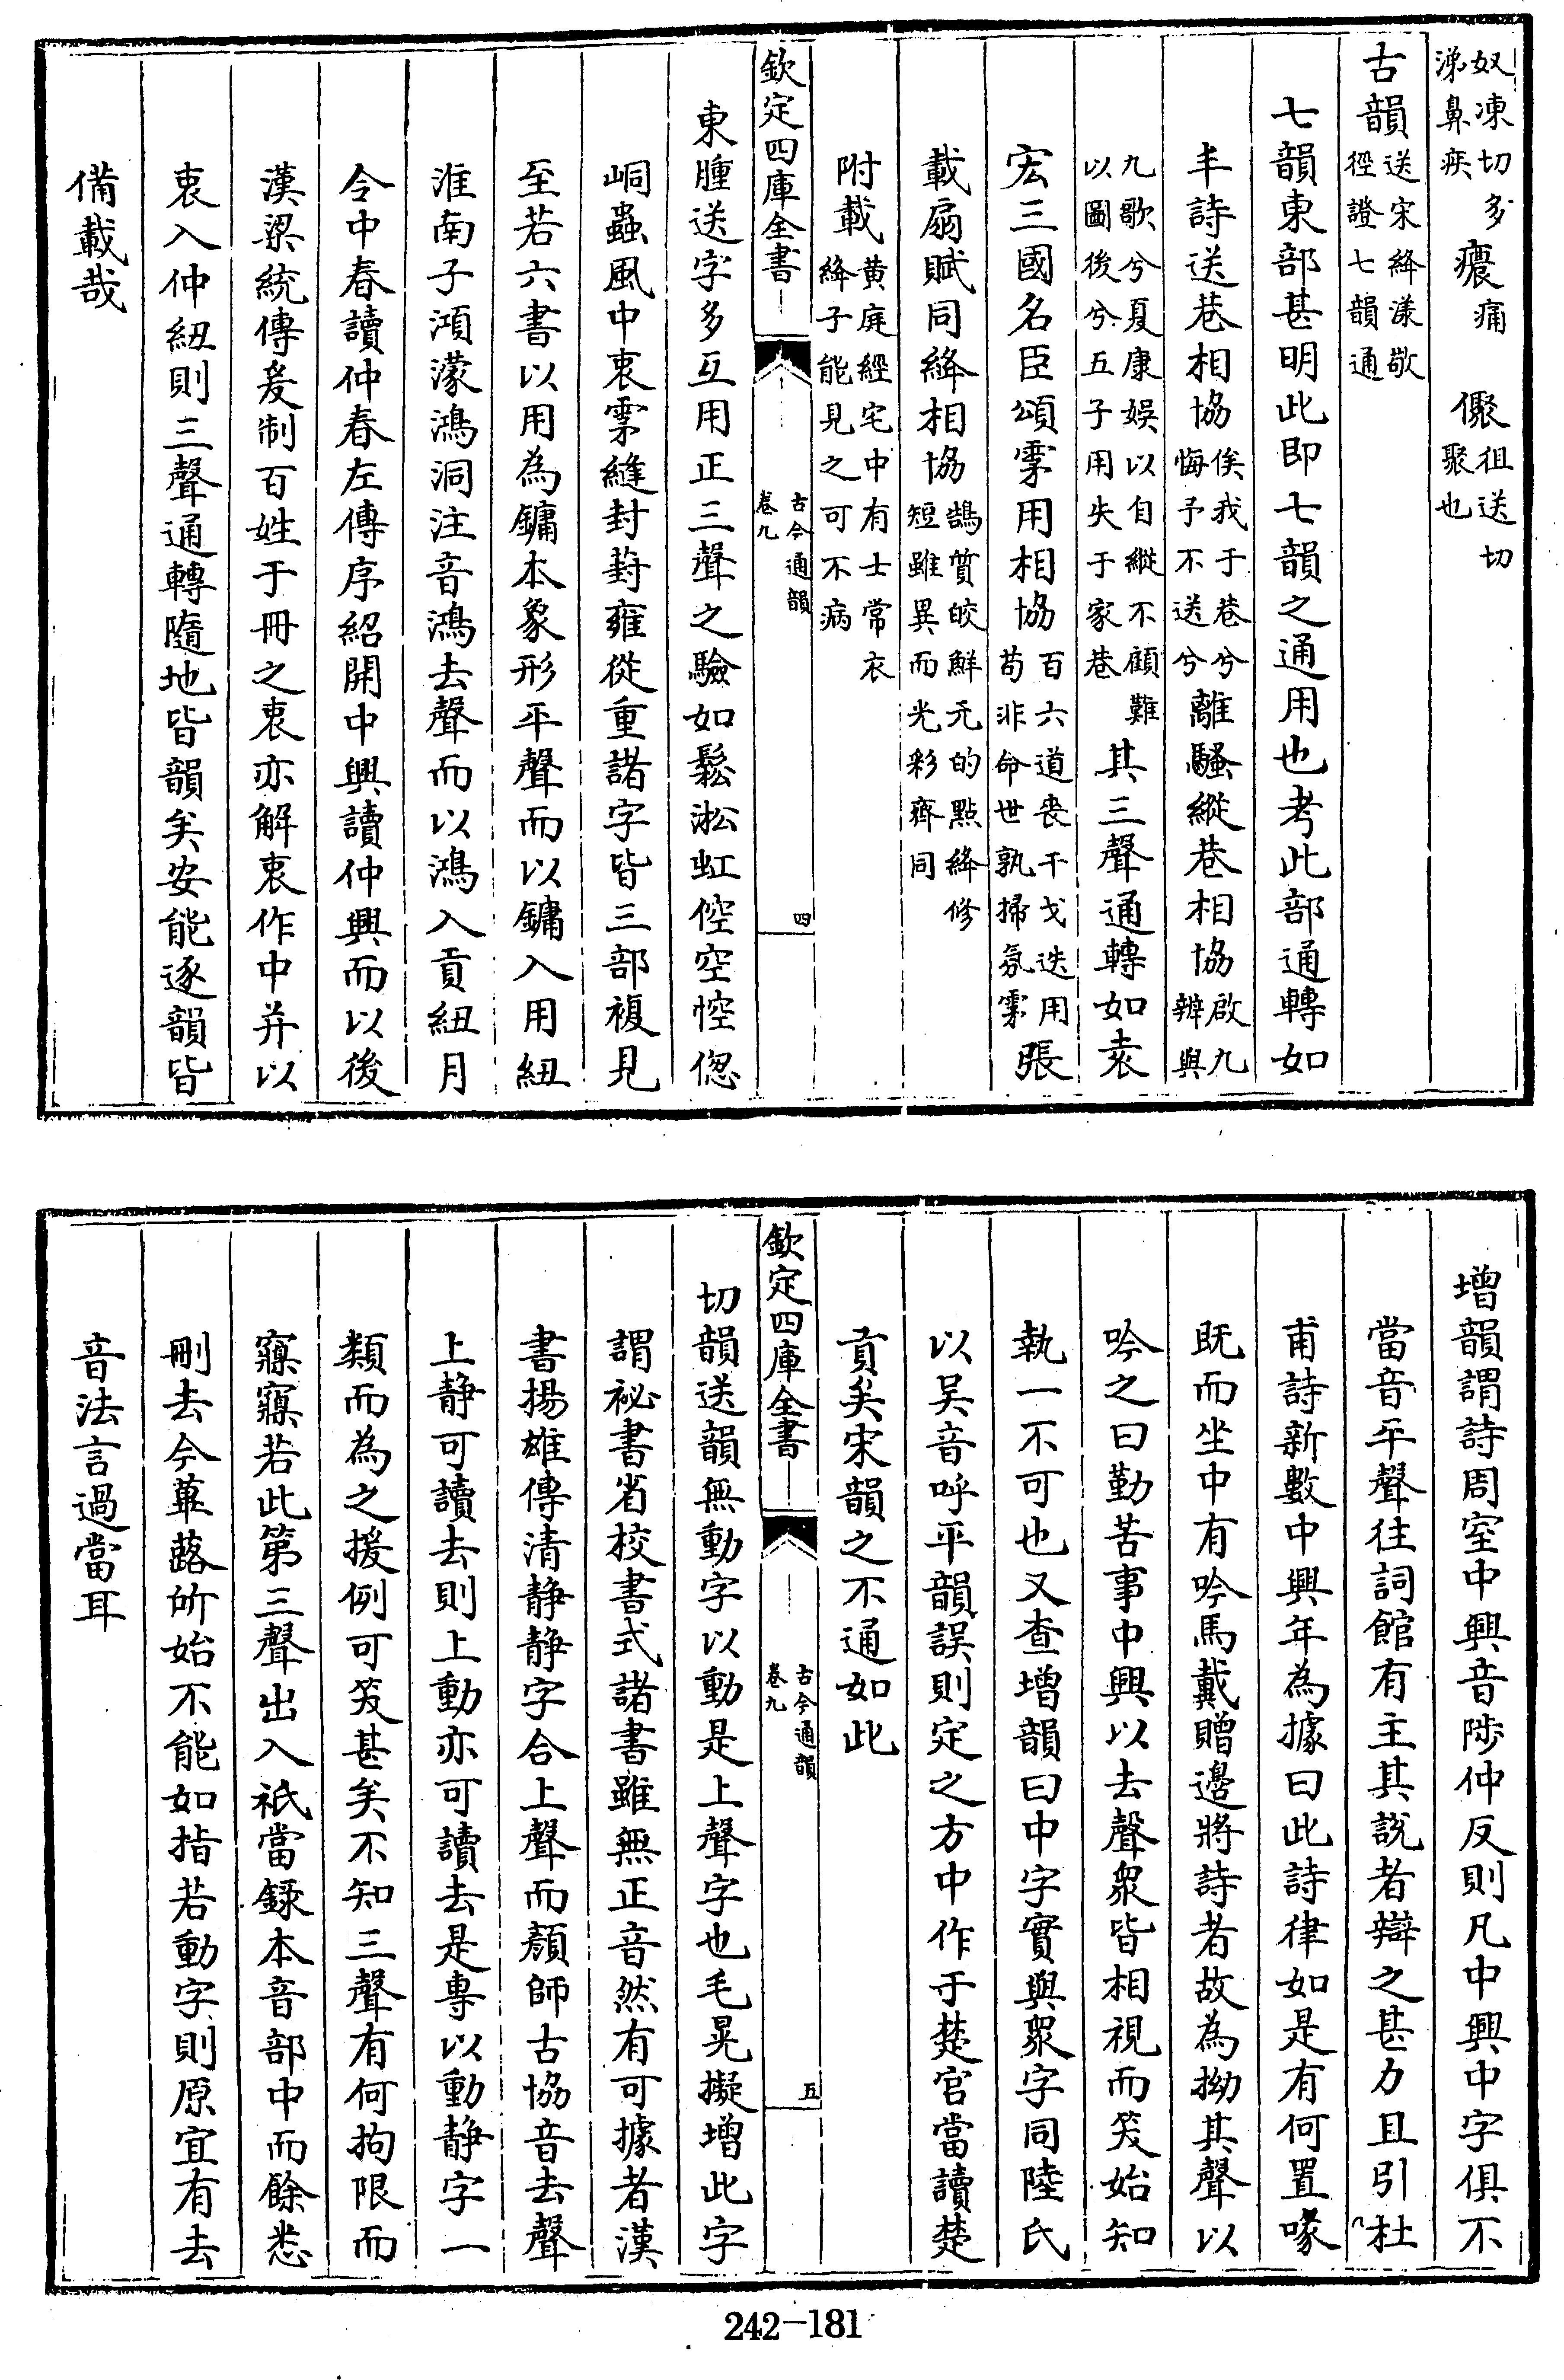 奴凍切多涕鼻疾癑痛　儬徂送切聚也
古韻送宋絳漾敬徑證七韻通
七韻東部甚明此即七韻之通用也考此部通轉如
丰詩送巷相協俟我于巷兮悔予不送兮離騷縱巷相協啟九辨與
九歌兮夏康娛以自縱不顧難以圖後兮五子用失于家巷其三聲通轉如袁
宏三國名臣頌雺用相協百六道喪干戈迭用苟非命世孰掃氛雺張
載扇賦同絳相協鵠質皎鮮元的點絳修短雖異而光彩齊同
附載黄庭經宅中有士常衣絳子能見之可不病
欽定四庫全書　古今通韻卷九　四
東腫送字多互用正三聲之驗如鬆淞虹倥空悾偬
峒蟲風中衷雺縫封葑雍從重諸字皆三部複見
至若六書以用為鏞本象形平聲而以鏞入用紐
淮南子澒濛鴻洞注音鴻去聲而以鴻入貢紐月
令中春讀仲春左傳序紹開中興讀仲興而以後
漢梁統傳爰制百姓于冊之衷亦解衷作中并以
衷入仲紐則三聲通轉隨地皆韻矣安能逐韻皆
備載哉
增韻謂詩周室中興音陟仲反則凡中興中字俱不
當音平聲往詞館有主其說者辯之甚力且引杜
甫詩新數中興年為據曰此詩律如是有何置喙
既而坐中有吟馬戴贈邊將詩者故為拗其聲以
吟之曰勤苦事中興以去聲衆皆相視而笑始知
執一不可也又查增韻曰中字實與衆字同陸氏
以吴音呼平韻誤則定之方中作于楚宫當讀楚
貢矣宋韻之不通如此
欽定四庫全書　古今通韻卷九　五
切韻送韻無動字以動是上聲字也毛晃擬增此字
謂祕書省校書式諸書雖無正音然有可據者漢
書揚雄傳清静静字合上聲而顔師古協音去聲
上静可讀去則上動亦可讀去是專以動静字一
類而為之援例可笑甚矣不知三聲有何拘限而
窾窾若此第三聲出入祇當録本音部中而餘悉
刪去今蕋蕗所始不能如指若動字則原宜有去
音法言過當耳
242-181